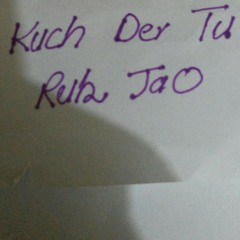 Kuch Der Tu
Ruk Jao